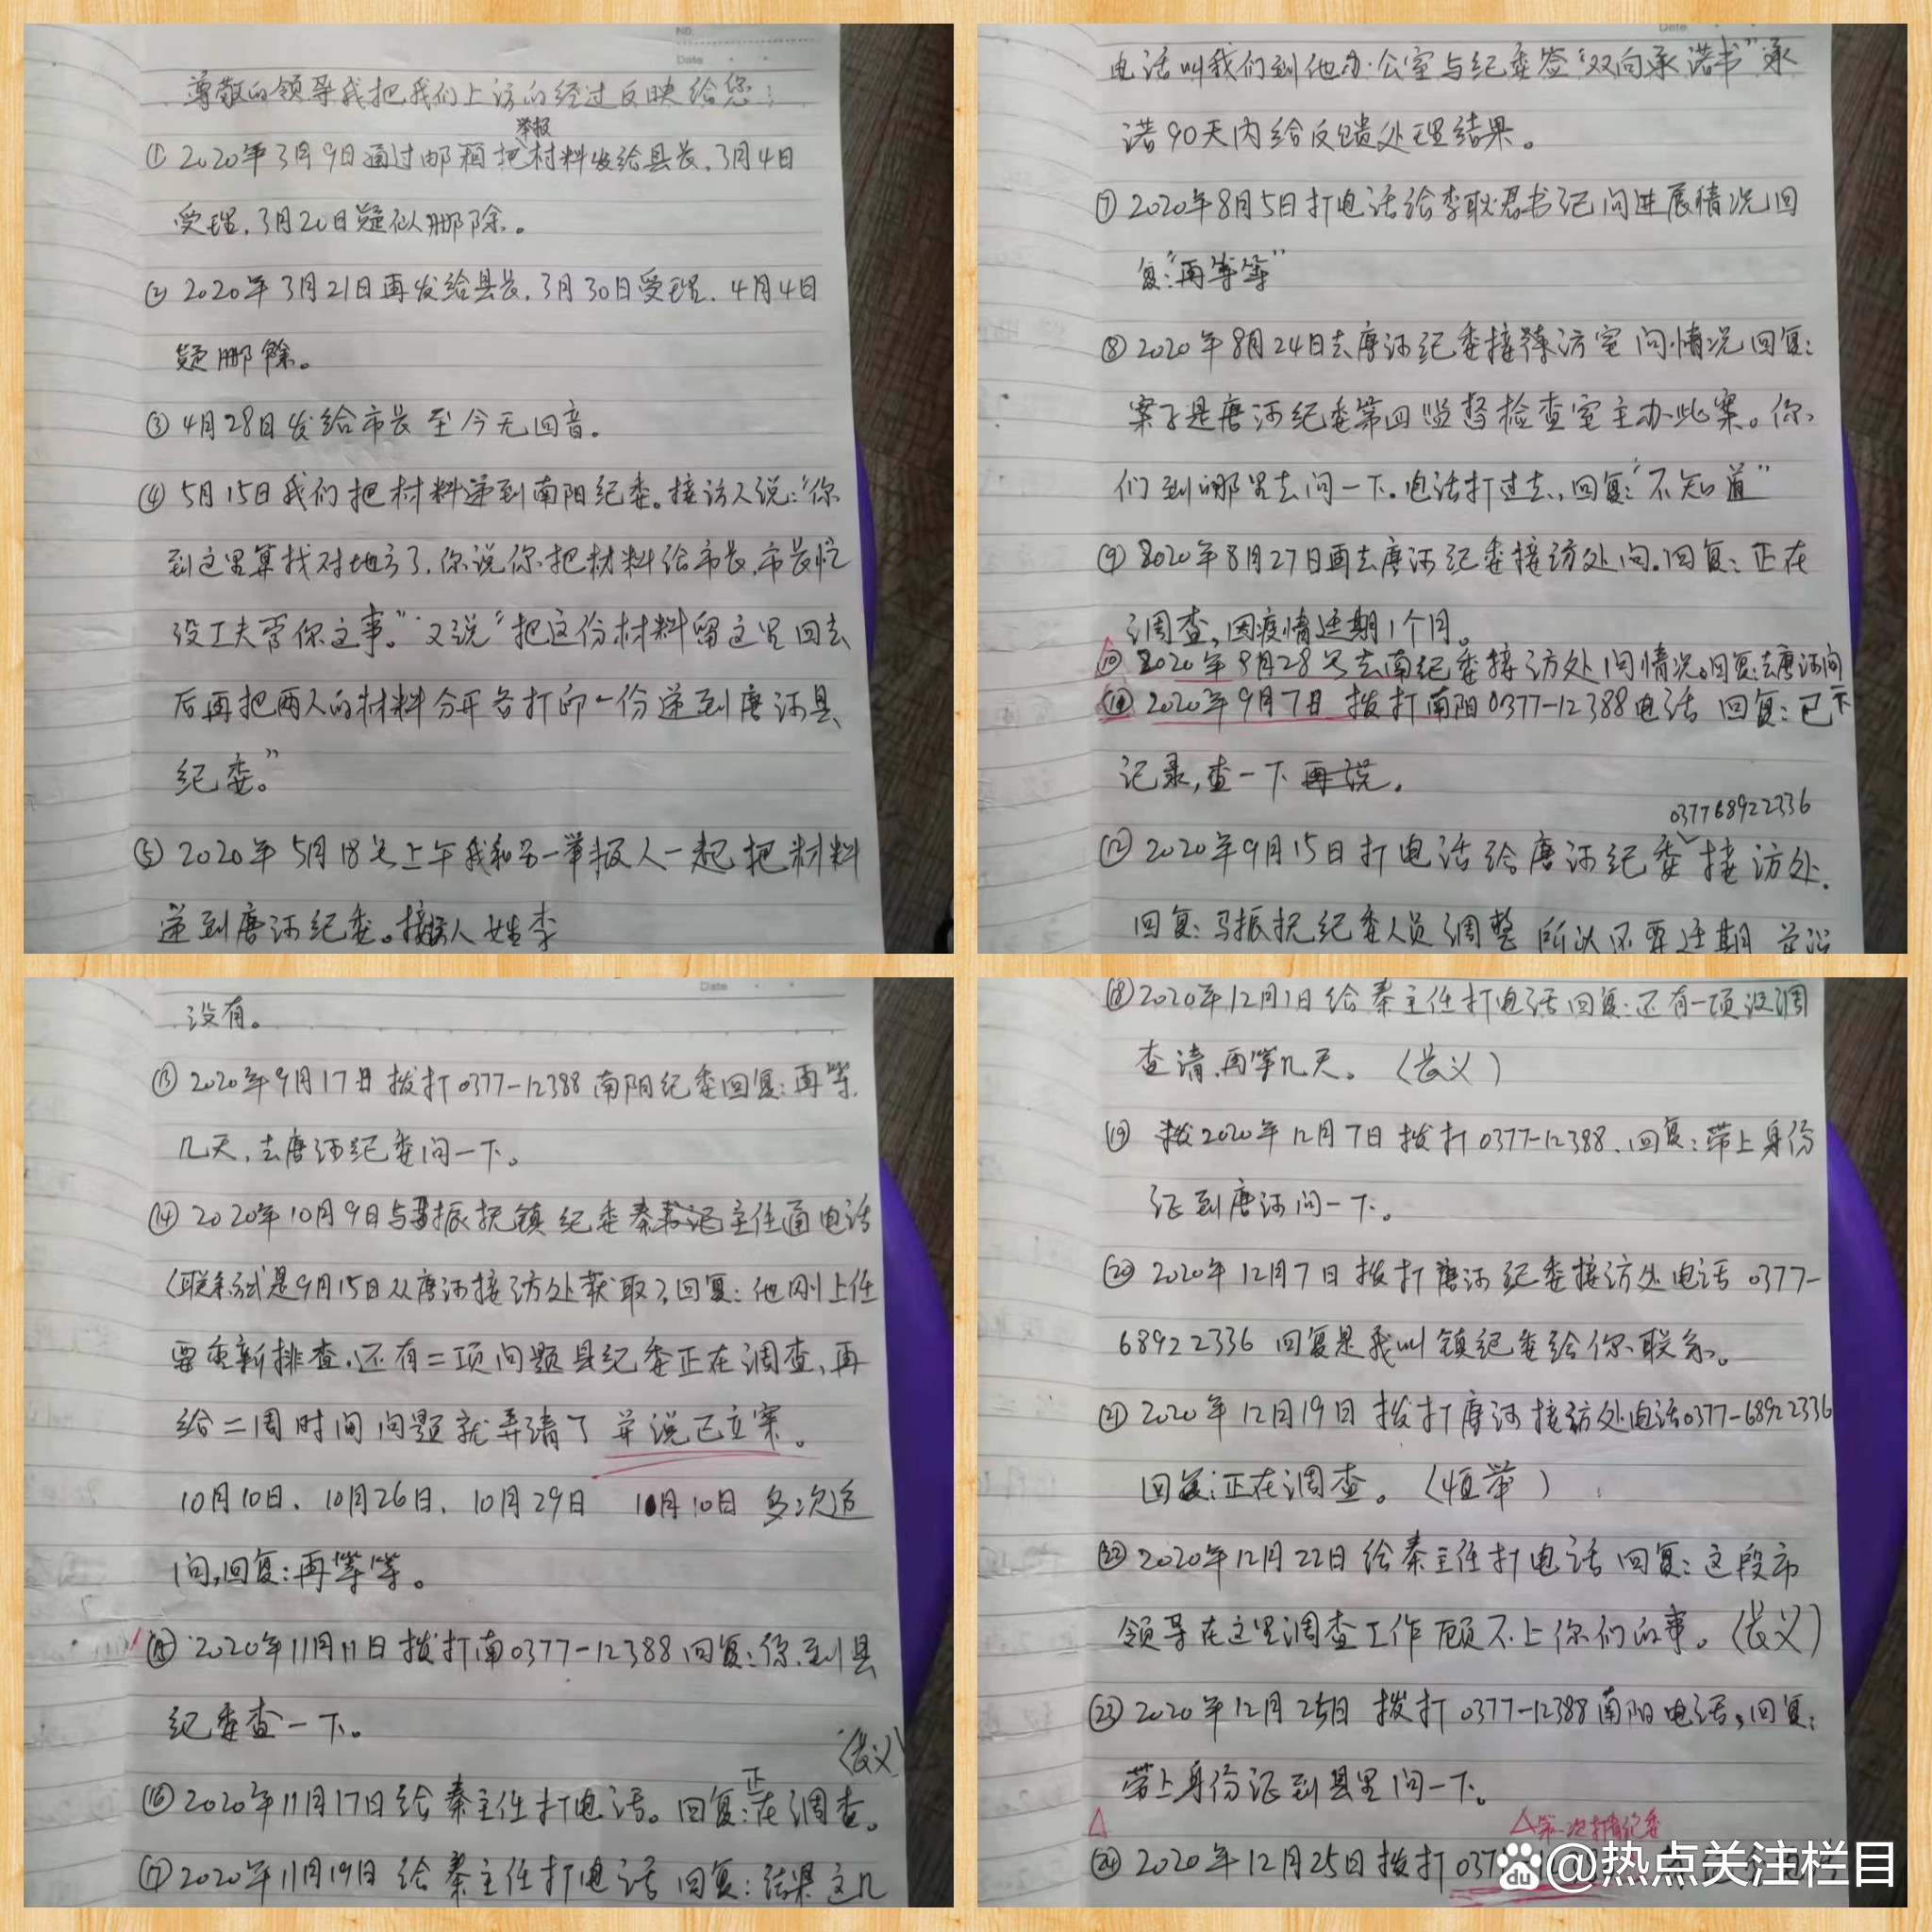 NO.
Date
尊敬的领导我把我们上访的经过反映给您:
举报
① 2020年3月9日通过邮箱把材料发给县长,3月4日
受理,3月20日疑似删除。
② 2020年3月21日再发给县长,3月30日受理,4月4日
疑删除。
③ 4月28日发给市长至今无回音。
④ 5月15日我们把材料递到南阳纪委。接访人说:“你
到这里算找对地方了,你说你把材料给市长,市长忙
没工夫管你这事。”又说“把这份材料留这里回去
后再把两人的材料分开各打印一份递到唐河县
纪委。”
⑤ 2020年5月18号上午我和另一举报人一起把材料
递到唐河纪委。接访人姓李
Date
电话叫我们到他办公室与纪委签“双向承诺书”承
诺90天内给反馈处理结果。
⑦ 2020年8月5日打电话给李耿君书记问进展情况回
复:“再等等”
⑧ 2020年8月24日去唐河纪委接访室问情况回复:
案子是唐河纪委第四监督检查室主办此案。你
们到哪里去问一下。电话打过去,回复:“不知道”
⑨ 2020年8月27日再去唐河纪委接访处问.回复:正在
调查,因疫情延期1个月。
⑩ 2020年8月28号去南纪委接访处问情况。回复:去唐河问
2020年9月7日 拨打南阳0377-12388电话 回复:已下
记录,查一下再说。
037768922336
⑫ 2020年9月15日打电话给唐河纪委接访处.
回复:马振抚纪委人员调整 所以还要延期 并说
Date
没有。
⑬ 2020年9月17日拨打0377-12388南阳纪委回复:再等
几天,去唐河纪委问一下。
⑭ 2020年10月9日与马振抚镇纪委秦书记主任通电话
(联系方式是9月15日从唐河接访处获取)回复:他刚上任
要重新排查.还有二项问题县纪委正在调查,再
给二周时间问题就弄清了并说已立案。
10月10日、10月26日、10月29日 10月10日 多次追
问,回复:再等等。
⑮ 2020年11月11日拨打南0377-12388回复:你到县
纪委查一下。
(长义)
⑯ 2020年11月17日给秦主任打电话。回复:正在调查。
⑰ 2020年11月19日给秦主任打电话 回复:结果这几
⑱ 2020年12月1日给秦主任打电话回复:还有一项没调
查清.再等几天。(长义)
⑲ 2020年12月7日拨打0377-12388.回复:带上身份
证到唐河问一下。
⑳ 2020年12月7日拨打唐河纪委接访处电话0377-
68922336 回复是我叫镇纪委给你联系。
㉑ 2020年12月19日拨打唐河接访处电话0377-68922336
回复:正在调查。(恒举)
㉒ 2020年12月22日给秦主任打电话回复:这段市
领导在这里调查工作顾不上你们的事。(长义)
㉓ 2020年12月25日拨打0377-12388南阳电话,回复:
带上身份证到县里问一下。
㉔ 2020年12月25日拨打037
du @热点关注栏目